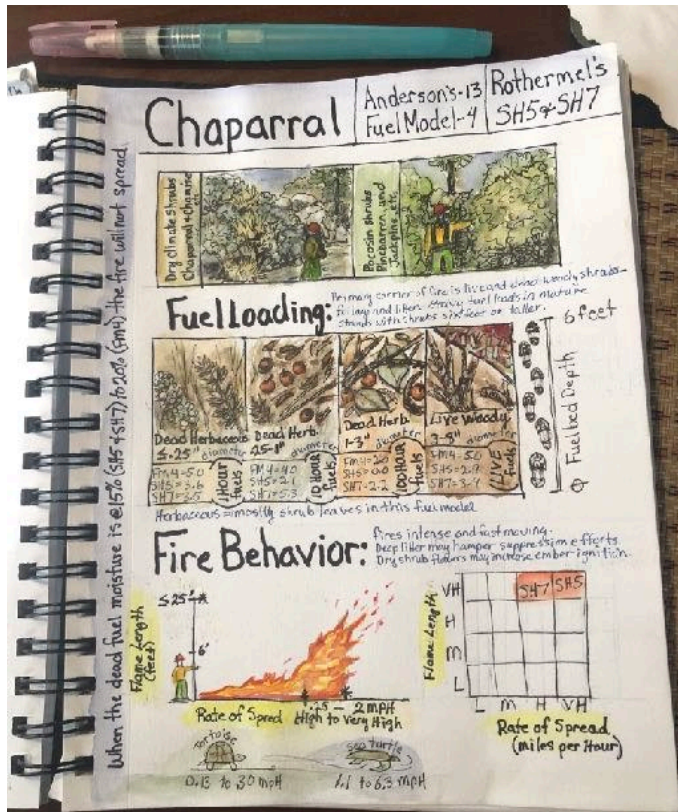 Chaparral
Anderson's-13
Fuel Model-4
Rothermel's
SH5 & SH7
When the dead fuel moisture is @15% (SH5 & SH7) to 20% (FM4) the fire will not spread.
Dry climate shrubs
Chaparral + Chamise
etc.
Pocosin shrubs
Pinebarren, and
Jackpine, etc.
Fuel Loading:
Primary carrier of fire is live and dead woody shrubs
foliage and litter. Heavy fuel loads in mature
stands with shrubs six feet or taller.
Dead Herbaceous
≤.25" diameter
FM4=5.0
SH5=3.6
SH7=3.5
1 HOUR fuels
Dead Herb.
.25-1" diameter
FM4=4.0
SH5=2.1
SH7=5.3
10 HOUR fuels
Dead Herb
1-3" diameter
FM4=2.0
SH5=0.0
SH7=2.2
100 HOUR fuels
Live Woody
diameter
FM4=5.0
SH5=2.9
SH7=3.4
LIVE fuels
6 feet
Fuelbed Depth
Herbaceous=mostly shrub leaves in this fuel model
Fire Behavior:
Fires intense and fast moving.
Deep litter may hamper suppression efforts.
Dry shrub flavors may increase ember ignition.
Flame Length
(feet)
≤ 25'
6'
Rate of Spred
2 MPH
High to Very High
Tortoise
0.13 to .30 mpH
Sea turtle
1.1 to 6.3 mpH
Flame Length
VH
H
M
L
SH7
SH5
L M H VH
Rate of Spread
(miles per Hour)